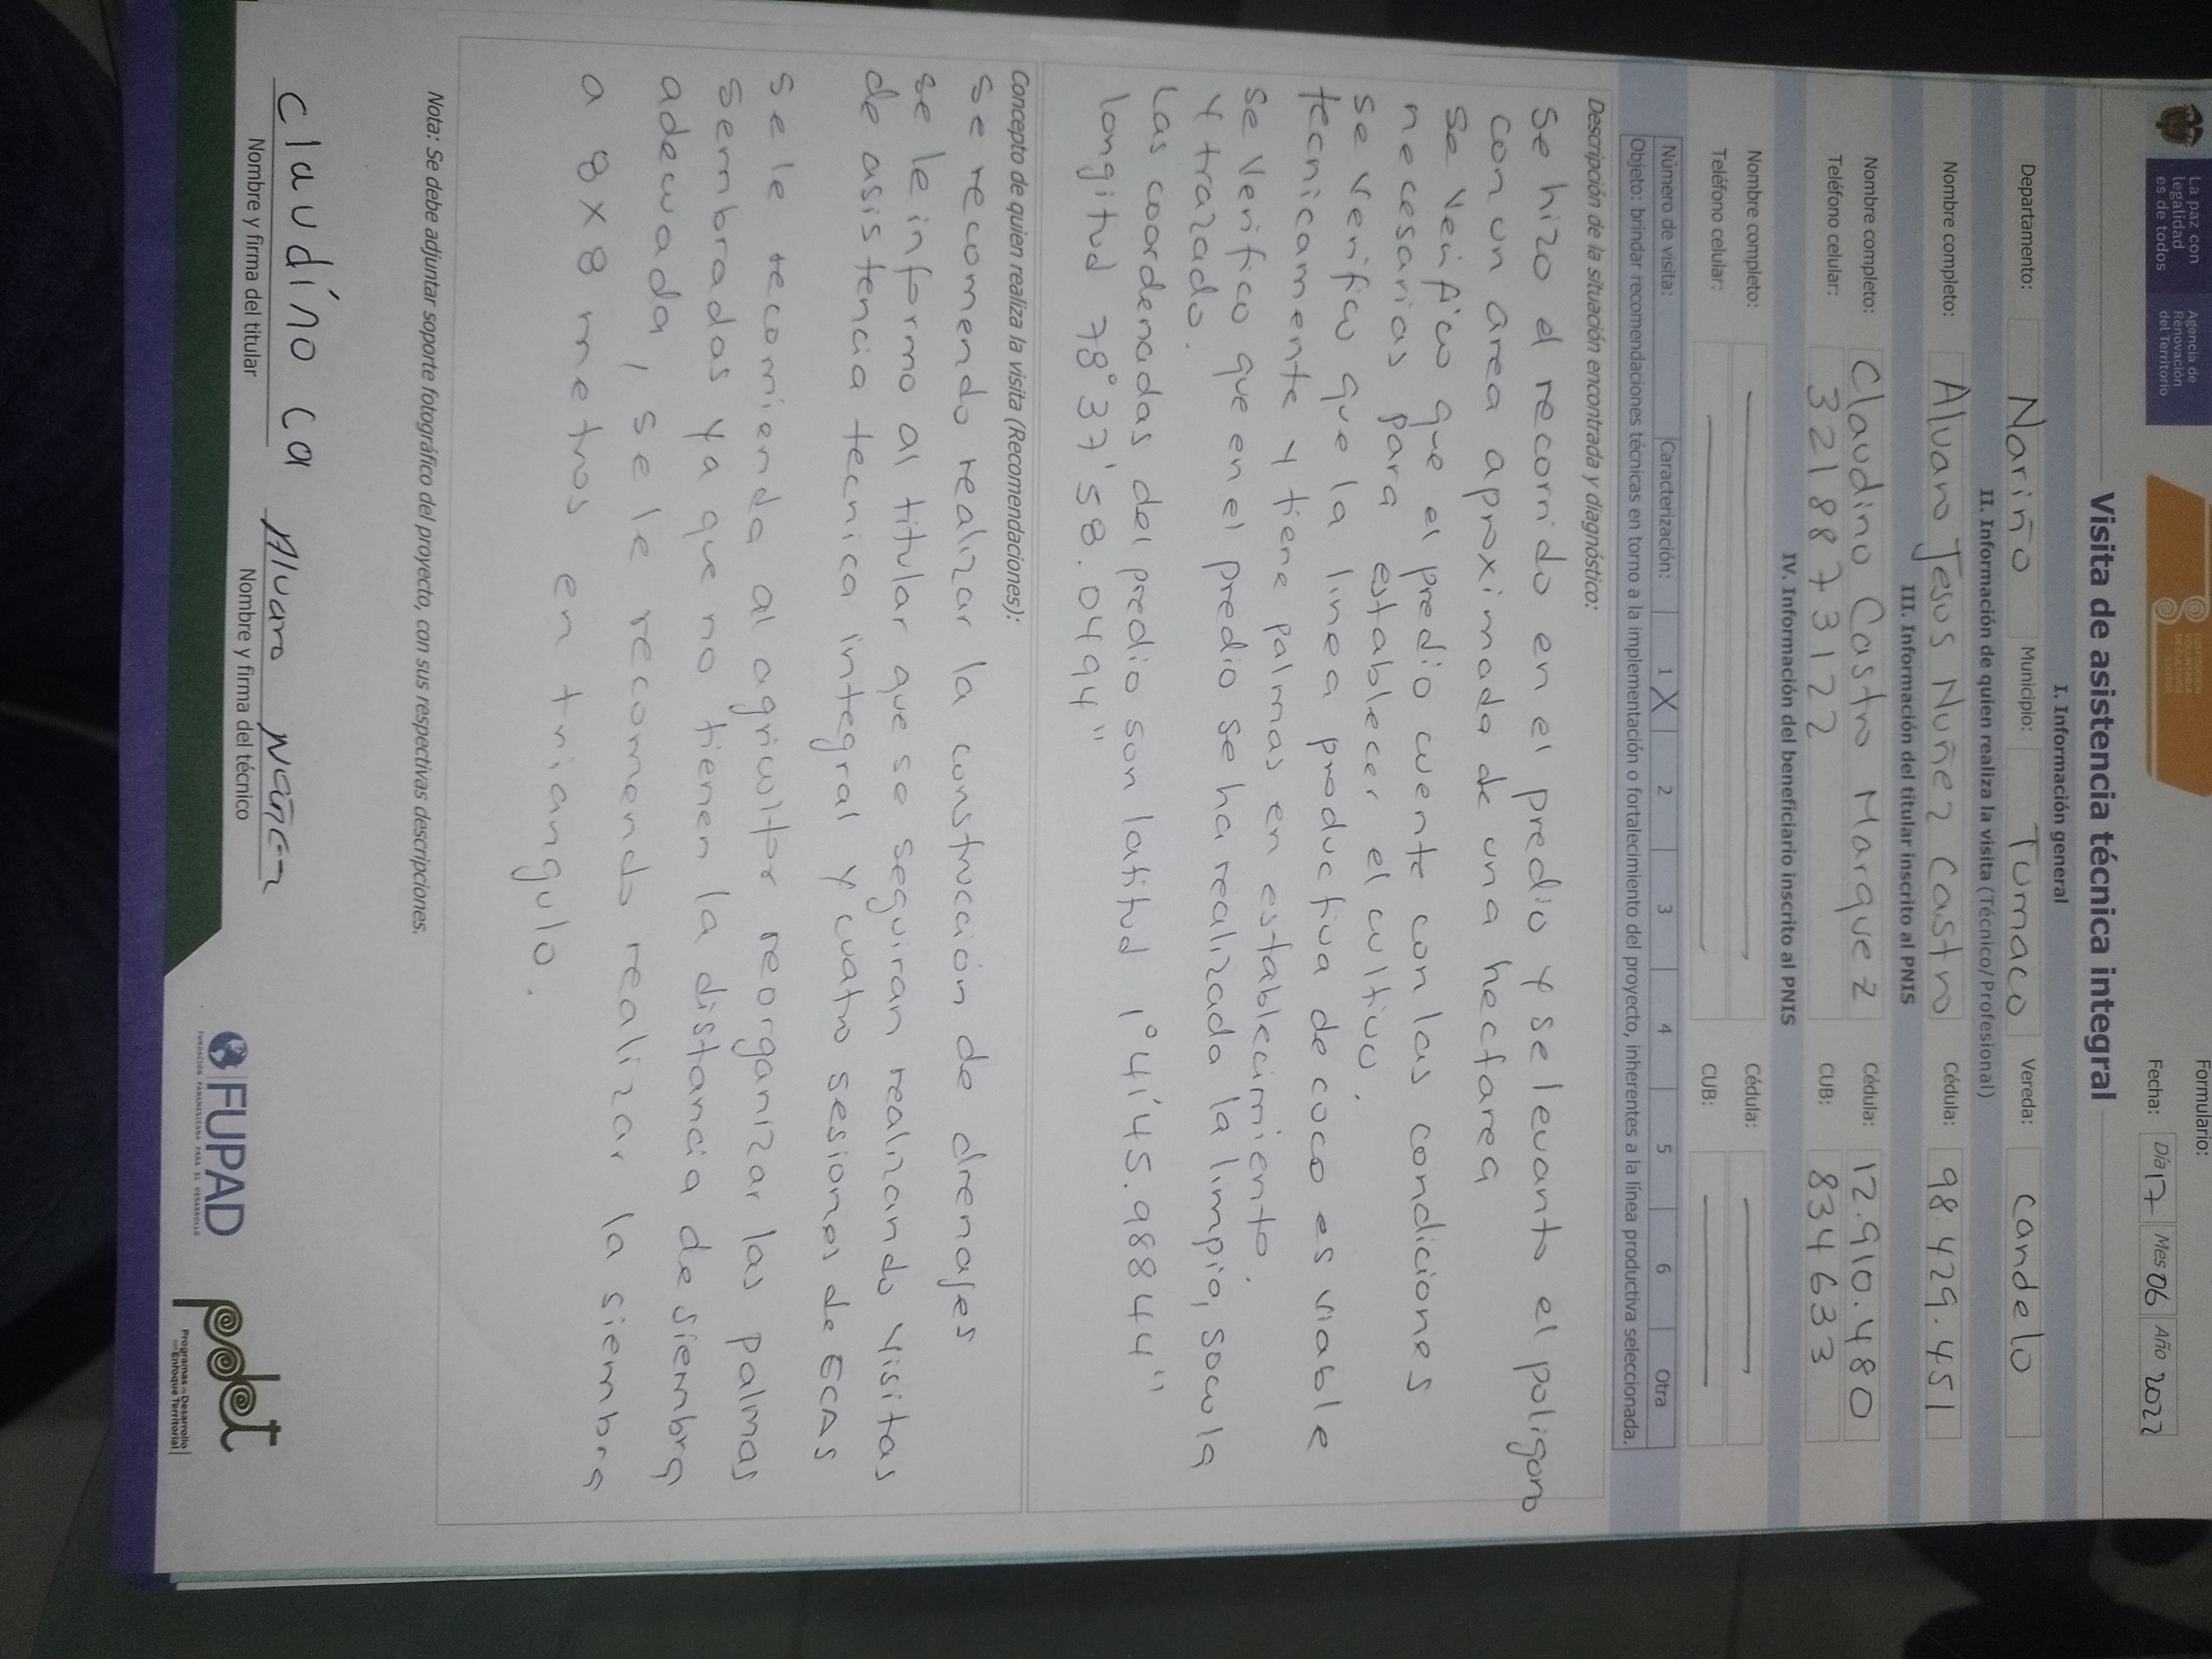 La paz con
legalidad
es de todos
Agencia de
Renovación
del Territorio
Formulario:
Fecha: Día 17 Mes 06 Año 2022
Visita de asistencia técnica integral
I. Información general
Departamento: Nariño Municipio: Tumaco Vereda: Candelo
II. Información de quien realiza la visita (Técnico/Profesional)
Nombre completo: Alvaro Jesus Nuñez Castro Cédula: 98.429.451
III. Información del titular inscrito al PNIS
Nombre completo: Claudino Castro Marquez Cédula: 12.910.480
Teléfono celular: 3218873122 CUB: 834633
IV. Información del beneficiario inscrito al PNIS
Nombre completo: Cédula:
Teléfono celular: CUB:
Número de visita: Caracterización: 1 X 2 3 4 5 6 Otra
Objeto: brindar recomendaciones técnicas en torno a la implementación o fortalecimiento del proyecto, inherentes a la línea productiva seleccionada.
Descripción de la situación encontrada y diagnóstico:
Se hizo el recorrido en el predio y se levanto el poligono
con un area aproximada de una hectarea
se verifico que el predio cuente con las condiciones
necesarias para establecer el cultivo.
se verifico que la linea productiva de coco es viable
tecnicamente y tiene palmas en establecimiento.
se verifico que en el predio se ha realizado la limpia, socola
y trazado.
Las coordenadas del predio son latitud 1°41'45.98844"
longitud 78°37'58.0494"
Concepto de quien realiza la visita (Recomendaciones):
se recomendo realizar la construcción de drenajes
se le informo al titular que se seguiran realizando visitas
de asistencia tecnica integral y cuatro sesiones de ECAS
se le recomienda al agricultor reorganizar las palmas
sembradas ya que no tienen la distancia de siembra
adecuada, se le recomendo realizar la siembra
a 8x8 metros en triangulo.
Nota: Se debe adjuntar soporte fotográfico del proyecto, con sus respectivas descripciones.
Claudino ca Alvaro Nuñez
Nombre y firma del titular Nombre y firma del técnico
FUPAD
FUNDACIÓN PANAMERICANA PARA EL DESARROLLO
pdet
Programas de Desarrollo
con Enfoque Territorial